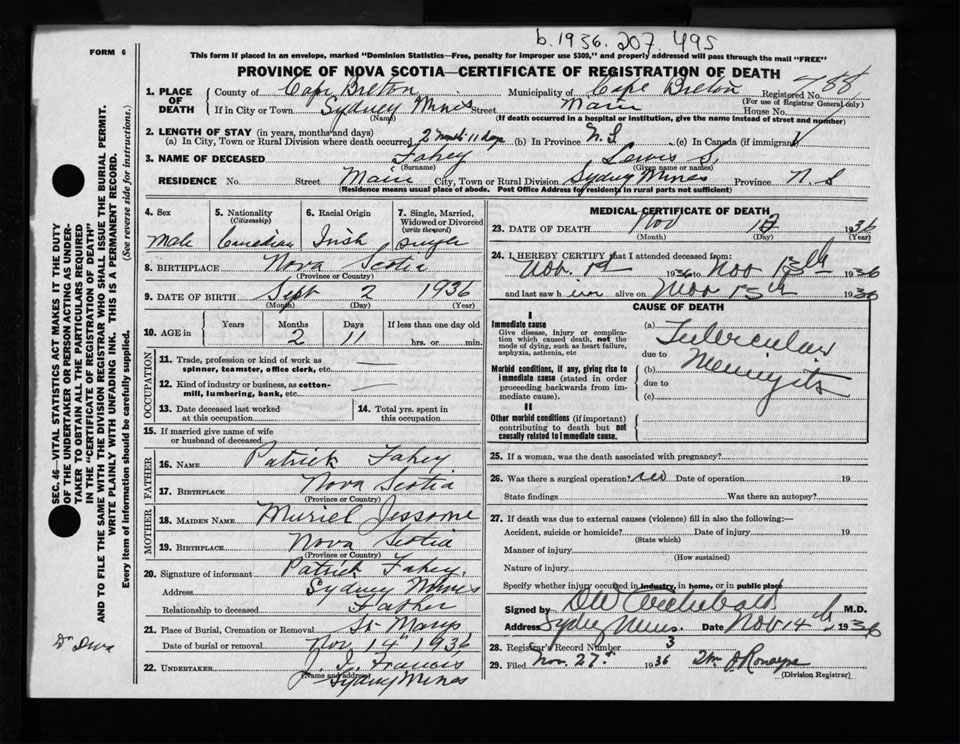 b.1936.207.495
FORM 6
This form if placed in an envelope, marked "Dominion Statistics—Free, penalty for improper use $300," and properly addressed will pass through the mail "FREE"
PROVINCE OF NOVA SCOTIA—CERTIFICATE OF REGISTRATION OF DEATH
SEC. 46—VITAL STATISTICS ACT MAKES IT THE DUTY
OF THE UNDERTAKER OR PERSON ACTING AS UNDER-
TAKER TO OBTAIN ALL THE PARTICULARS REQUIRED
IN THE "CERTIFICATE OF REGISTRATION OF DEATH"
AND TO FILE THE SAME WITH THE DIVISION REGISTRAR WHO SHALL ISSUE THE BURIAL PERMIT.
WRITE PLAINLY WITH UNFADING INK. THIS IS A PERMANENT RECORD.
Every item of information should be carefully supplied. (See reverse side for instructions.)
1. PLACE OF DEATH County of Cape Breton Municipality of Cape Breton Registered No. 788
(For use of Registrar General only)
If in City or Town Sydney Mines Street Main House No.
(Name) (If death occurred in a hospital or institution, give the name instead of street and number)
2. LENGTH OF STAY (in years, months and days)
(a) In City, Town or Rural Division where death occurred 2 months 11 days (b) In Province N.S (c) In Canada (if immigrant)
3. NAME OF DECEASED Fahey Lewis S.
(Surname) (Given name or names)
RESIDENCE No. Street Main City, Town or Rural Division Sydney Mines Province N.S
(Residence means usual place of abode. Post Office Address for residents in rural parts not sufficient)
4. Sex 5. Nationality (Citizenship) 6. Racial Origin 7. Single, Married, Widowed or Divorced (write the word)
Male Canadian Irish Single
8. BIRTHPLACE Nova Scotia
(Province or Country)
9. DATE OF BIRTH Sept 2 1936
(Month) (Day) (Year)
10. AGE in Years Months Days If less than one day old
2 11 hrs. or min.
OCCUPATION
11. Trade, profession or kind of work as
spinner, teamster, office clerk, etc. —
12. Kind of industry or business, as cotton-
mill, lumbering, bank, etc. —
13. Date deceased last worked at this occupation
14. Total yrs. spent in this occupation
15. If married give name of wife
or husband of deceased
FATHER
16. NAME Patrick Fahey
17. BIRTHPLACE Nova Scotia
(Province or Country)
MOTHER
18. MAIDEN NAME Muriel Jessome
19. BIRTHPLACE Nova Scotia
(Province or Country)
20. Signature of informant Patrick Fahey.
Address Sydney Mines
Relationship to deceased Father
21. Place of Burial, Cremation or Removal St Marys
Date of burial or removal Nov 14th 1936
22. UNDERTAKER J. J. Francis
(Name and address) Sydney Mines
MEDICAL CERTIFICATE OF DEATH
23. DATE OF DEATH Nov 1936
(Month) (Day) (Year)
24. I HEREBY CERTIFY that I attended deceased from:
Nov. 1936 to Nov 13th 1936
and last saw h im alive on Nov 13th 1936
CAUSE OF DEATH
I
Immediate cause
Give disease, injury or complica-
tion which caused death, not the
mode of dying, such as heart failure,
asphyxia, asthenia, etc
(a) Tubercular
due to
Morbid conditions, if any, giving rise to
immediate cause (stated in order
proceeding backwards from im-
mediate cause).
(b) Meningitis
due to
(c)
II
Other morbid conditions (if important)
contributing to death but not
causally related to immediate cause.
25. If a woman, was the death associated with pregnancy?
26. Was there a surgical operation? no Date of operation 19
State findings Was there an autopsy?
27. If death was due to external causes (violence) fill in also the following:—
Accident, suicide or homicide? Date of injury 19
(State which)
Manner of injury
(How sustained)
Nature of injury
Specify whether injury occurred in industry, in home, or in public place
Signed by DW Archibald M.D.
Address Sydney Mines Date Nov 14th 1936
28. Registrar's Record Number 3
29. Filed Nov. 27th 1936
(Division Registrar)